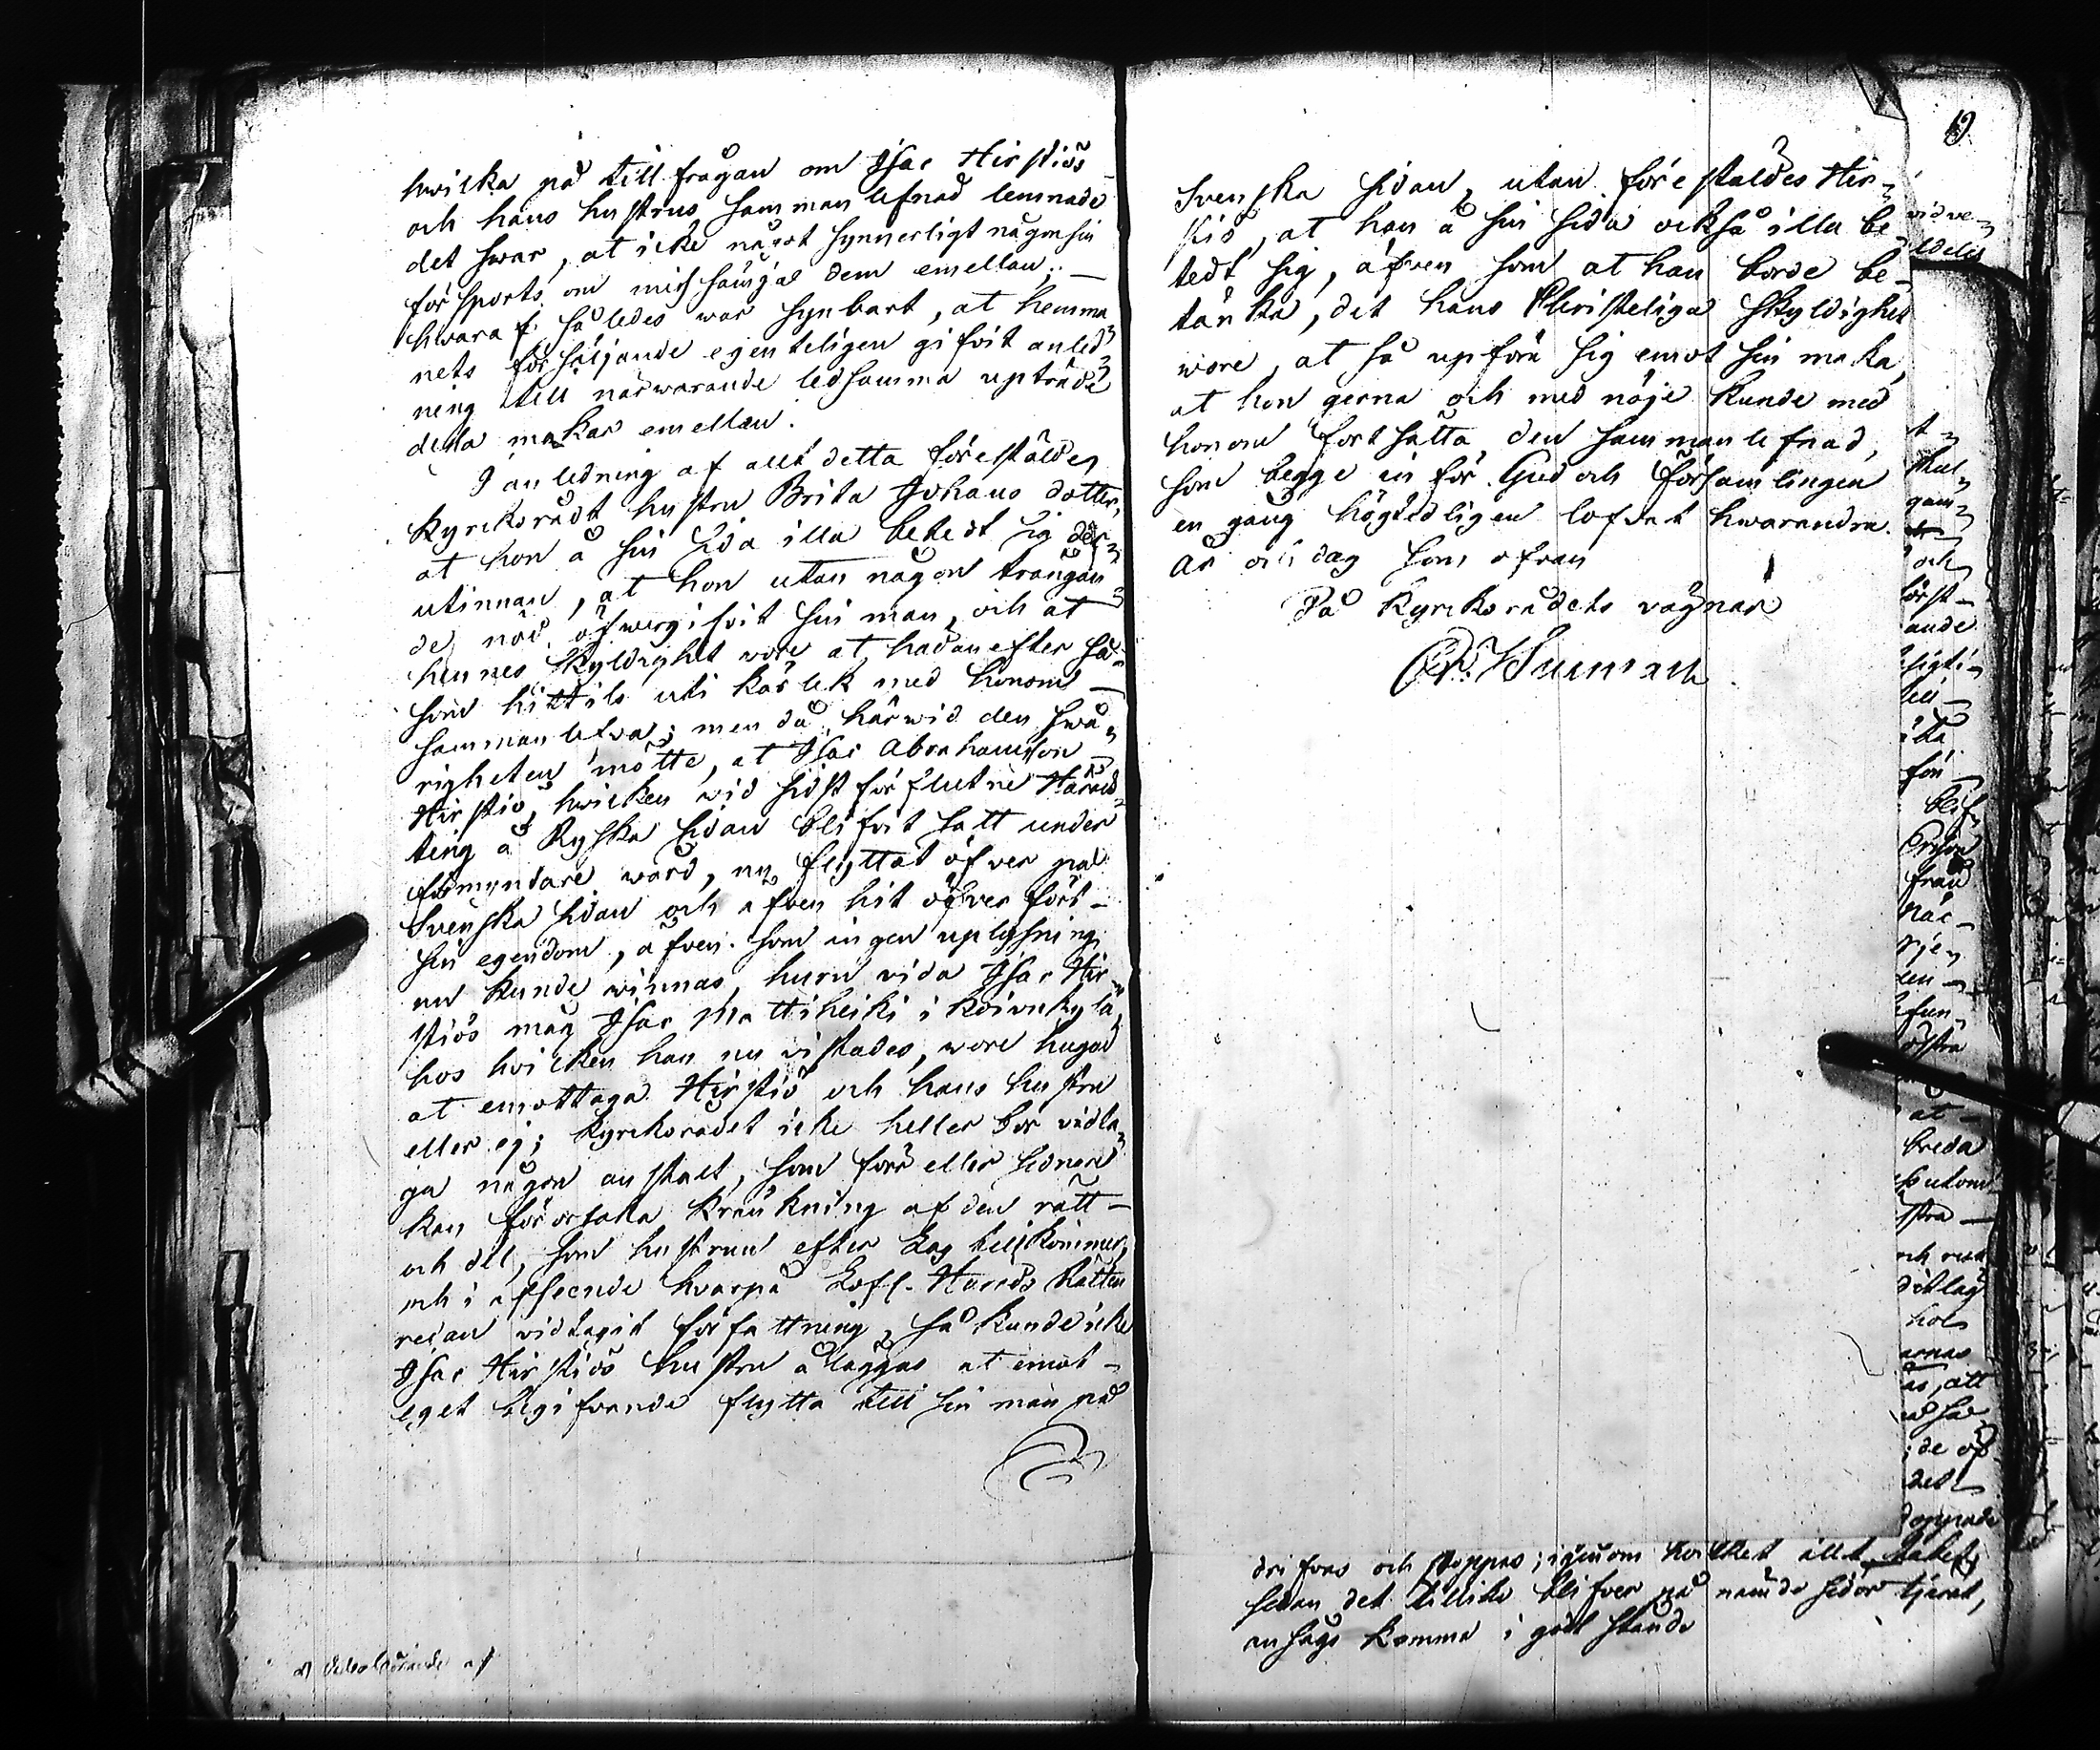 hwilka på tillfrågan om Isac Hirstiös
och hans hustrus sammanlefnad lemnade
det swar, at icke något synnerligt någonsin
försports om missämjal dem emellan; —
hwaraf således war synbart, at hemma
nets försäljande egenteligen gifvit anled
ning till närwarande ledsamma uptråde
dessa makar emellan.
I anledning af allt detta föreståldes
Kyrckorådt hustru Brita Johans dotter,
at hon å sin sida illa betedt sig der
utinnan, at hon utan någon trångan
de nöd öfwergifvit sin man, och at
hennes skyldighet wore at hädanefter så
som hittils uti kärlek med honom —
sammanlefva; men då härwid den swå
righeten mötte, at Isac Abrahamsson
Hirstiö, hwilken wid sidst förflutne Härads
ting å Ryska sidan blifvit satt under
förmyndare wård, nu flyttat öfver på
Svenska sidan och afven hit öfver fört —
sin egendom, äfven som ingen uplysning
nu kunde winnas, huru vida Isac Hir
stiös måg Isac Mattiheiki i Koivukylä,
hos hvilken han nu vistades, wore hugad
at emottaga Hirstiö och hans hustru
eller ej; Kyrckorådet icke heller bör vidta
ga någon anstalt, som förr eller sednare
kan förorsaka kränkning af den rätt —
och del, som hustrun efter Lag tillkommer,
och i afseende hvarpå Lofl. Härads Rätten
redan vidtagit författning, så kunde icke
Isac Hirstiös hustru åläggas at emot —
eget begifvande flytta till sin man på
Svenska sidan, utan förestaldes Hir
stiö, at han å sin sida också illa be
tedt sig, äfven som at han borde be
tänka, det hans Christeliga skyldighet
wore, at så upföra sig emot sin maka,
at hon gerna och med nöje kunde med
honom fortsätta den sammanlefnad,
som begge in för Gud och Församlingen
en gång högtidligen lofvat hwarandra.
År och dag som ofvan
På Kyrckorådets vägnar
19
vid we
t
och
ande
för
från
fun
at
breda
stra —
arnas
as, att
de af
det
drifvas och stoppas; igenom hvilket allt
sedan det tillika blifver på nämde sidor tjerat,
ansågs komma i godt stånd